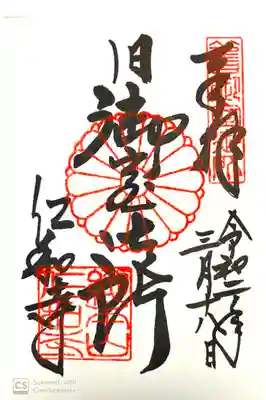 奉拝
令和二年
三月十八日
旧
御室御所
仁和寺
CS
Scanned with
CamScanner